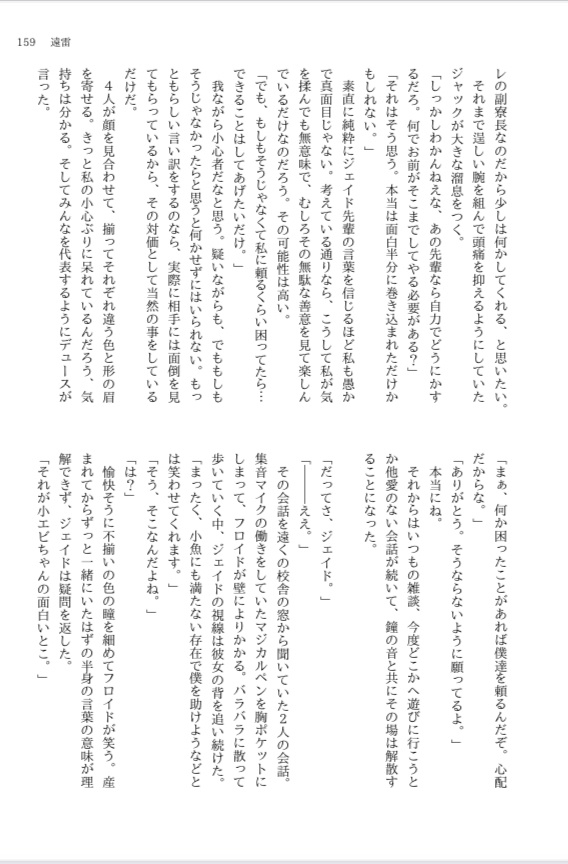 159　遠雷
レの副寮長なのだから少しは何かしてくれる、と思いたい。
それまで逞しい腕を組んで頭痛を抑えるようにしていた
ジャックが大きな溜息をつく。
「しっかしわかんねえな、あの先輩なら自力でどうにかす
るだろ。何でお前がそこまでしてやる必要がある？」
「それはそう思う。本当は面白半分に巻き込まれただけか
もしれない。」
素直に純粋にジェイド先輩の言葉を信じるほど私も愚か
で真面目じゃない。考えている通りなら、こうして私が気
を揉んでも無意味で、むしろその無駄な善意を見て楽しん
でいるだけなのだろう。その可能性は高い。
「でも、もしもそうじゃなくて私に頼るくらい困ってたら…
できることはしてあげたいだけ。」
我ながら小心者だなと思う。疑いながらも、でももしも
そうじゃなかったらと思うと何かせずにはいられない。もっ
ともらしい言い訳をするのなら、実際に相手には面倒を見
てもらっているから、その対価として当然の事をしている
だけだ。
４人が顔を見合わせて、揃ってそれぞれ違う色と形の眉
を寄せる。きっと私の小心ぶりに呆れているんだろう、気
持ちは分かる。そしてみんなを代表するようにデュースが
言った。
「まぁ、何か困ったことがあれば僕達を頼るんだぞ。心配
だからな。」
「ありがとう。そうならないように願ってるよ。」
本当にね。
それからはいつもの雑談、今度どこかへ遊びに行こうと
か他愛のない会話が続いて、鐘の音と共にその場は解散す
ることになった。
「だってさ、ジェイド。」
「―――ええ。」
その会話を遠くの校舎の窓から聞いていた２人の会話。
集音マイクの働きをしていたマジカルペンを胸ポケットに
しまって、フロイドが壁によりかかる。バラバラに散って
歩いていく中、ジェイドの視線は彼女の背を追い続けた。
「まったく、小魚にも満たない存在で僕を助けようなどと
は笑わせてくれます。」
「そう、そこなんだよね。」
「は？」
愉快そうに不揃いの色の瞳を細めてフロイドが笑う。産
まれてからずっと一緒にいたはずの半身の言葉の意味が理
解できず、ジェイドは疑問を返した。
「それが小エビちゃんの面白いとこ。」